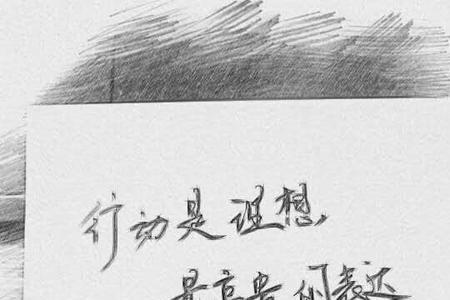 行动是理想，
最高贵的表达